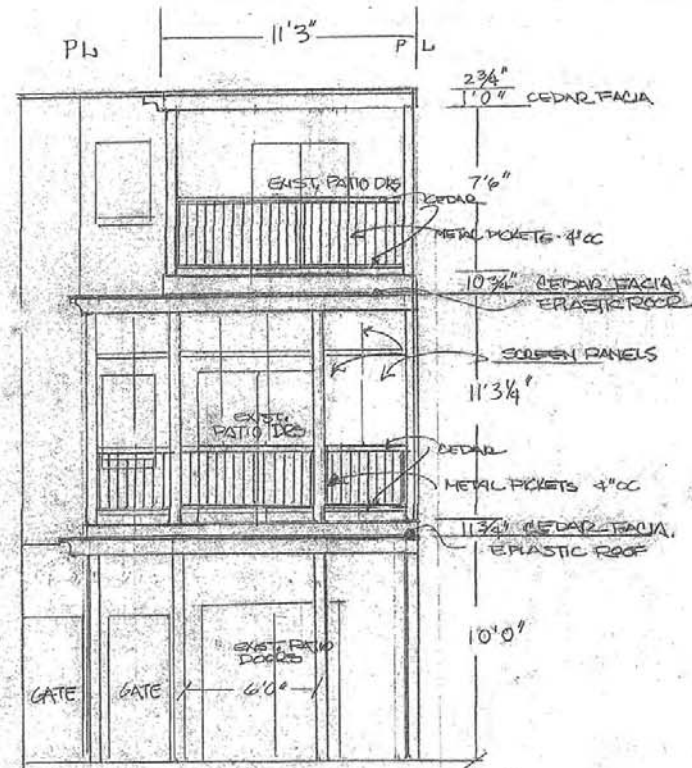 11'3"
PL
P L
2 3/4"
1'0" CEDAR FACIA
7'6"
EXIST. PATIO DRS
CEDAR
METAL PICKETS - 4" OC
10 3/4" CEDAR FACIA
EPLASTIC ROOF
SCREEN PANELS
11'3 1/4"
EXIST.
PATIO DRS
CEDAR
METAL PICKETS 4" OC
11 3/4" CEDAR FACIA.
EPLASTIC ROOF
10'0"
EXIST. PATIO
DOORS
GATE
GATE
6'0"